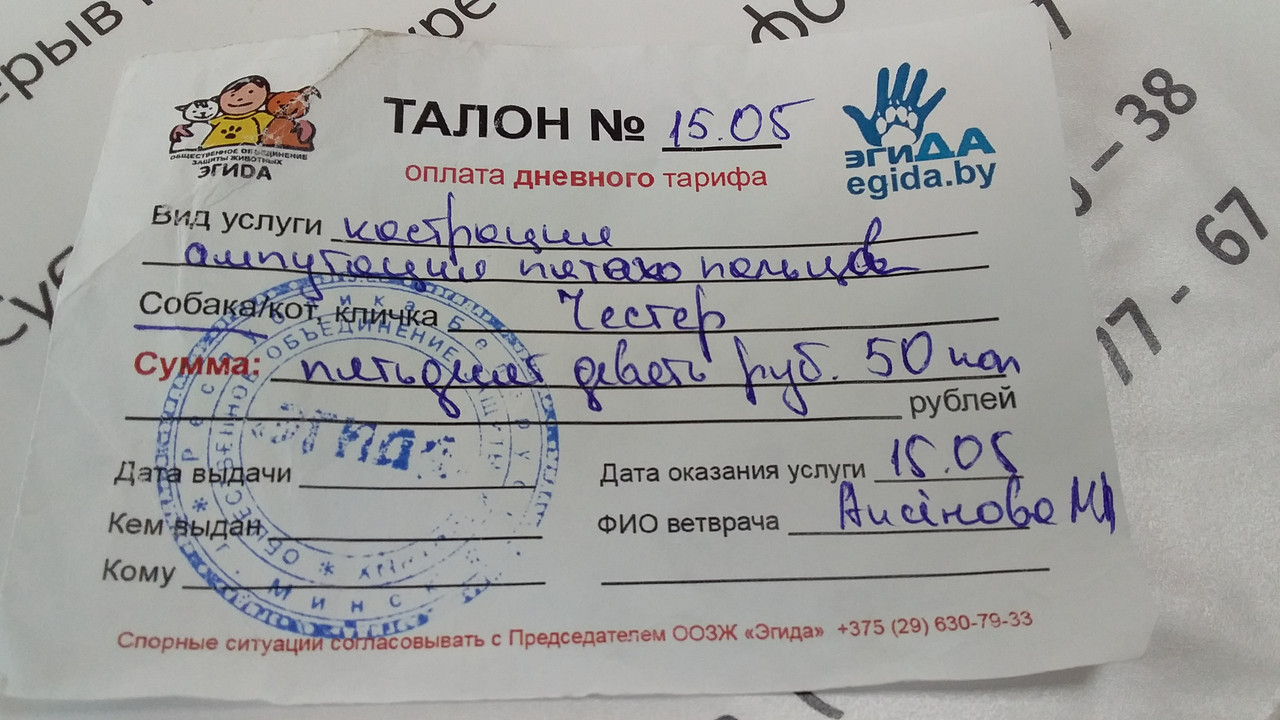 ерыв
ОБЩЕСТВЕННОЕ ОБЪЕДИНЕНИЕ
ЗАЩИТЫ ЖИВОТНЫХ
ЭГИДА
ТАЛОН № 15.05
оплата дневного тарифа
эгиДА
egida.by
– 38
67
17 -
Вид услуги кастрация
ампутация пятого пальцев
Собака/кот, кличка Честер
Сумма: пятьдесят девять руб. 50 коп
рублей
Дата выдачи
Дата оказания услуги 15.05
Кем выдан
ФИО ветврача
Кому
Республика Беларусь
ОБЩЕСТВЕННОЕ ОБЪЕДИНЕНИЕ
г. Минск
Эгида
Спорные ситуации согласовывать с Председателем ООЗЖ «Эгида» +375 (29) 630-79-33